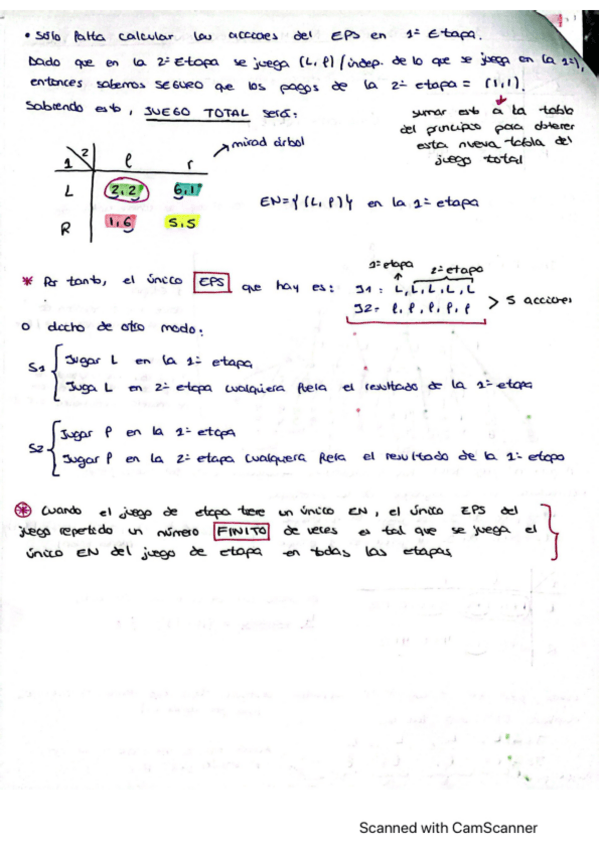 • Sólo falta calcular las acciones del EPS en 1ª Etapa.
Dado que en la 2ª Etapa se juega (L, l) / indep. de lo que se juega en la 1ª),
entonces sabemos SEGURO que los pagos de la 2ª etapa = (1,1).
Sabiendo esto, JUEGO TOTAL será:
sumar esto a la tabla
del principio para obtener
esta nueva tabla del
juego total
mirad árbol
1 2 l r
L 2,2 6,1
R 1,6 5,5
EN={(L, l)} en la 1ª etapa
* Por tanto, el único EPS que hay es:
1ª etapa 2ª etapa
J1 = L, L, L, L, L
J2 = l, l, l, l, l > 5 acciones
o dicho de otro modo:
S1 { Jugar L en la 1ª etapa
Juga L en 2ª etapa cualquiera fuera el resultado de la 1ª etapa
S2 { Jugar l en la 1ª etapa
Jugar l en la 2ª etapa cualquiera fuera el resultado de la 1ª etapa
* Cuando el juego de etapa tiene un único EN, el único EPS del
juego repetido un número FINITO de veces es tal que se juega el
único EN del juego de etapa en todas las etapas
Scanned with CamScanner